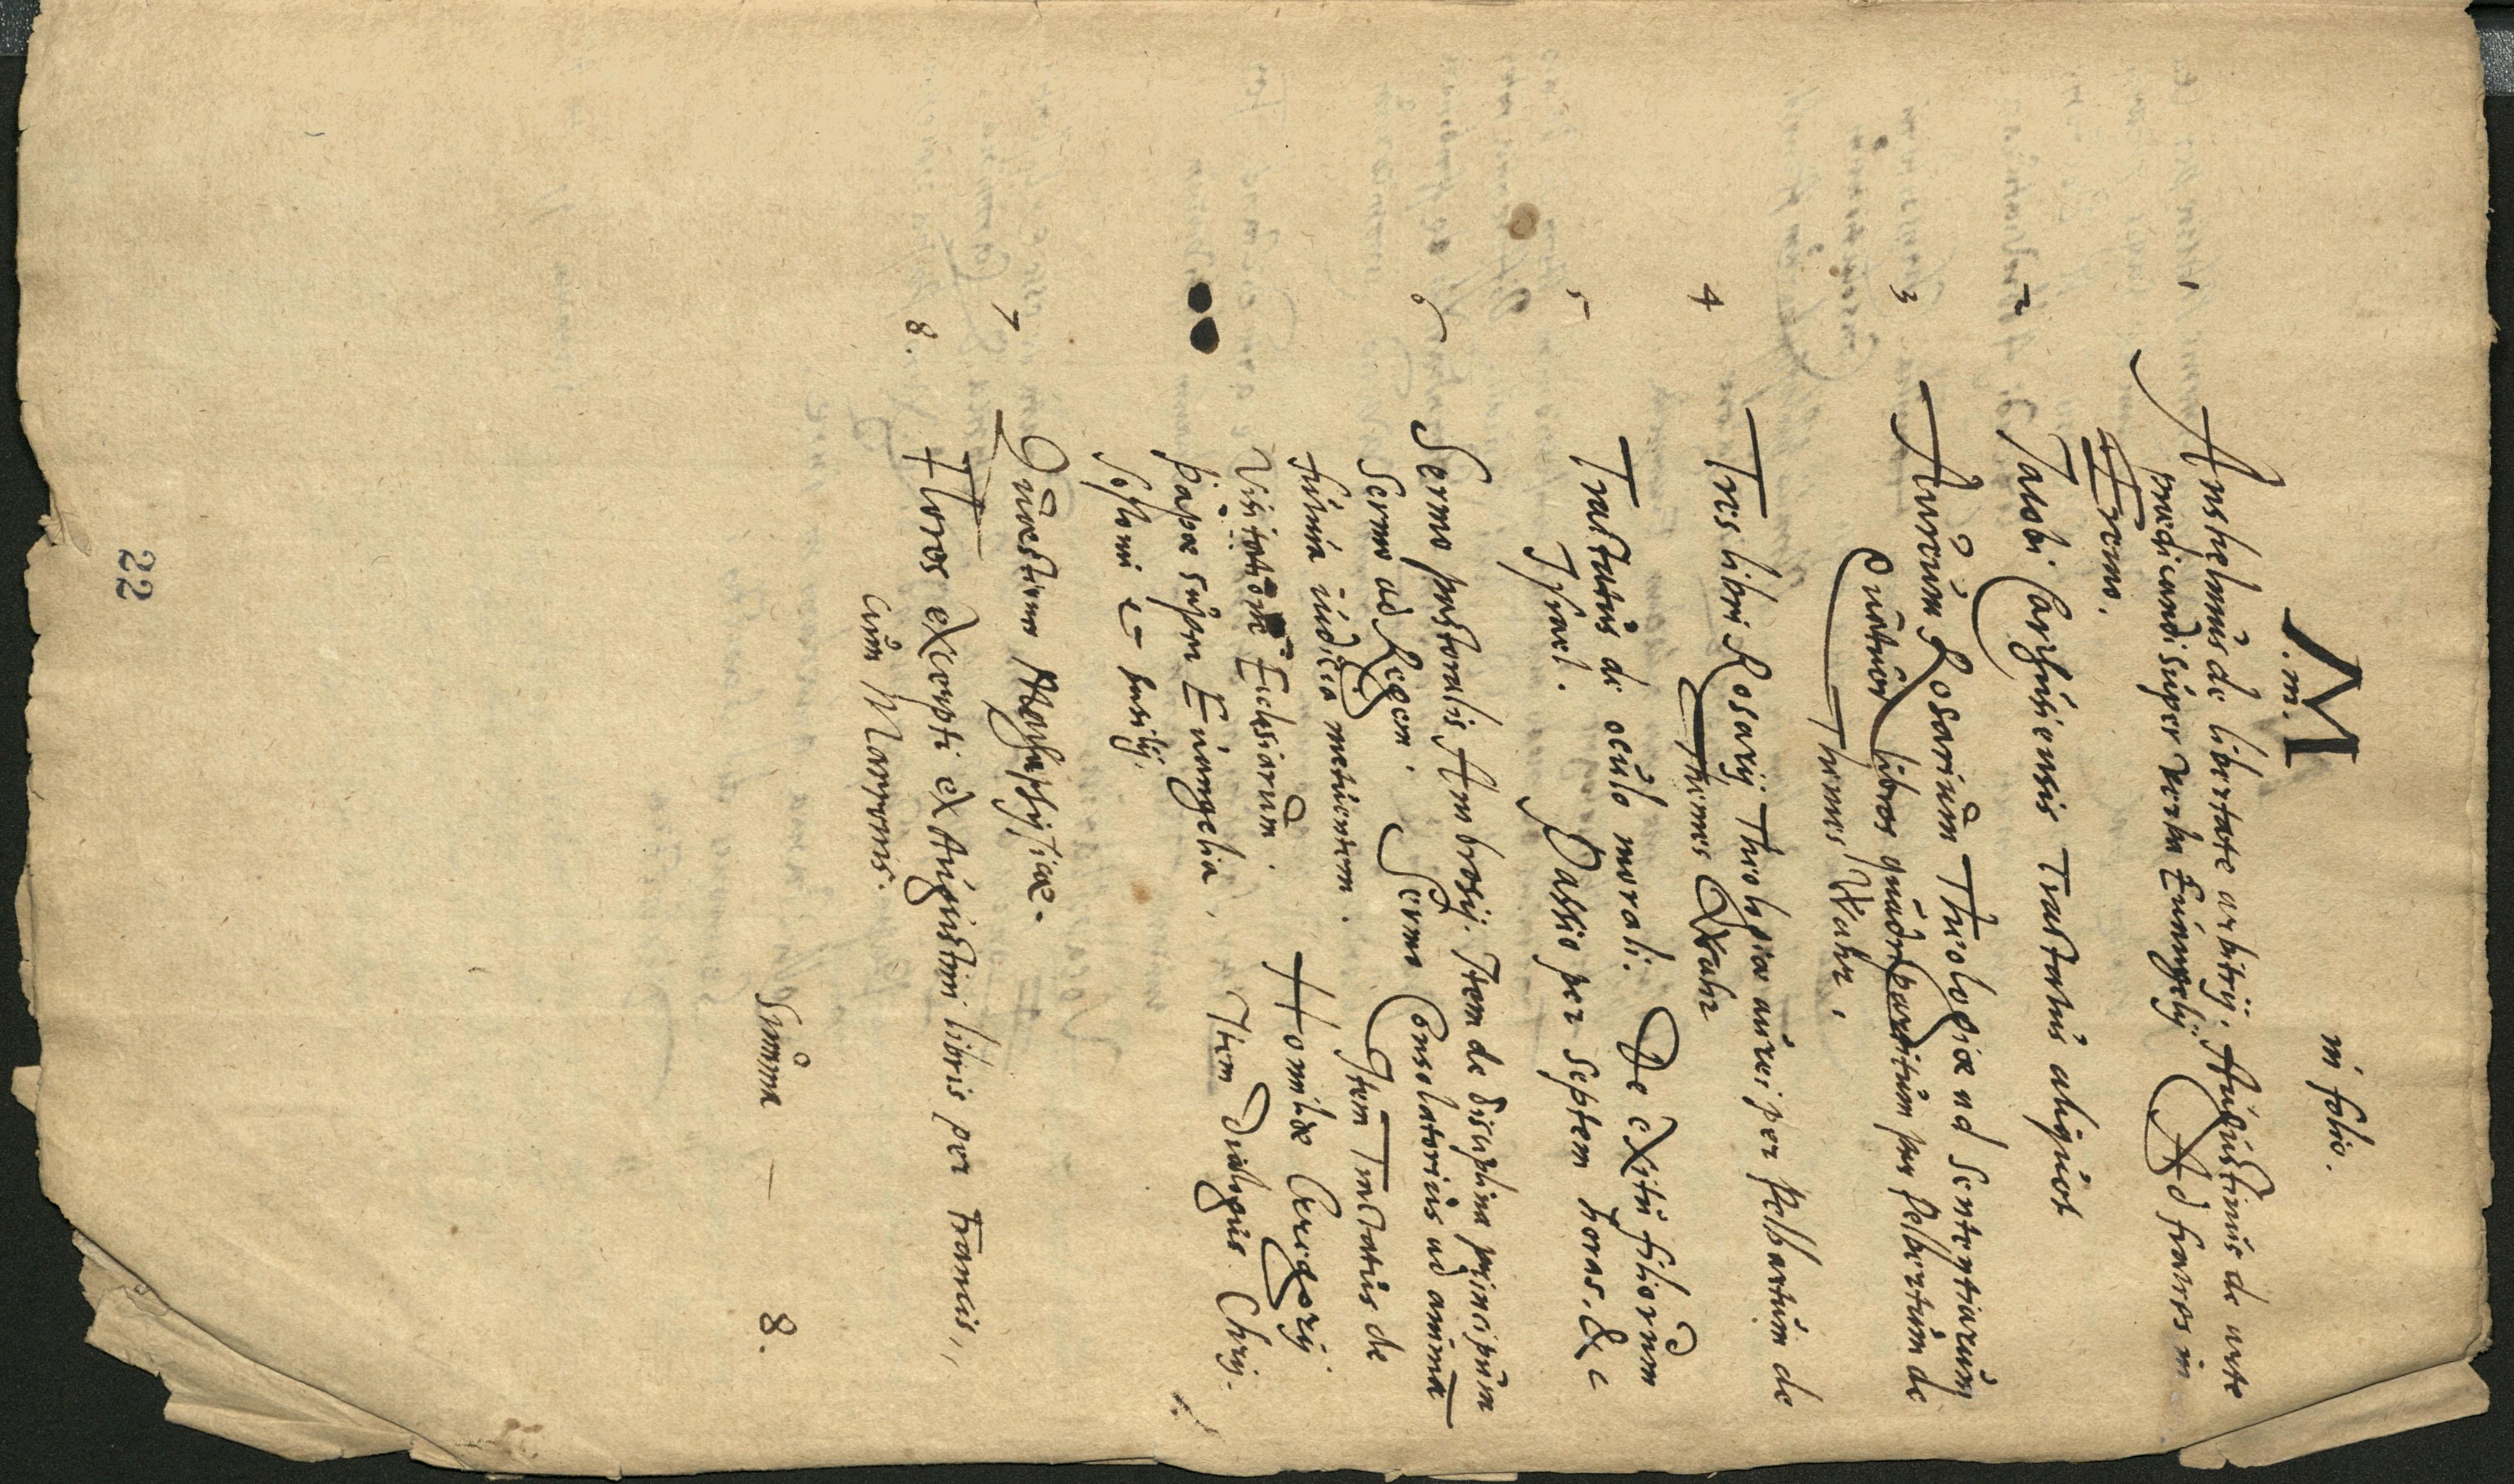 M
.m. in folio.
1 Anshelmus de libertate arbitrij. Augustinus de arte
praedicandi super verba Euangelij. Ad fratres in
Eremo.
2 Jacobi Carthusiensis Tractatus aliquot
3 Aureum Rosarium Theologiae ad Sententiarum
Quatuor libros quadripartitum per Pelbartum de
Themes Wahr.
4 Tres libri Rosarij Theologiae aurei per Pelbartum de
Themes Wahr
5 Tractatus de oculo morali. De exitu filiorum
Israel. Passio per Septem horas. &c
6 Sermo pastoralis Ambrosij. Item de disciplina principum
Sermo ad Regem. Sermo Consolatorius ad animã
futura iudicia metuentem. Item Tractatus de
Visitatione Ecclesiarum. Homiliae Gregorij
Papae super Euangelia. Item Dialogus Chrij-
sostomi et Basilij.
7 Quaestiones Metaphysicae.
8. Flores excerpti ex Augustini libris per Francis,,
cum Marronis.
Summa — 8.
22